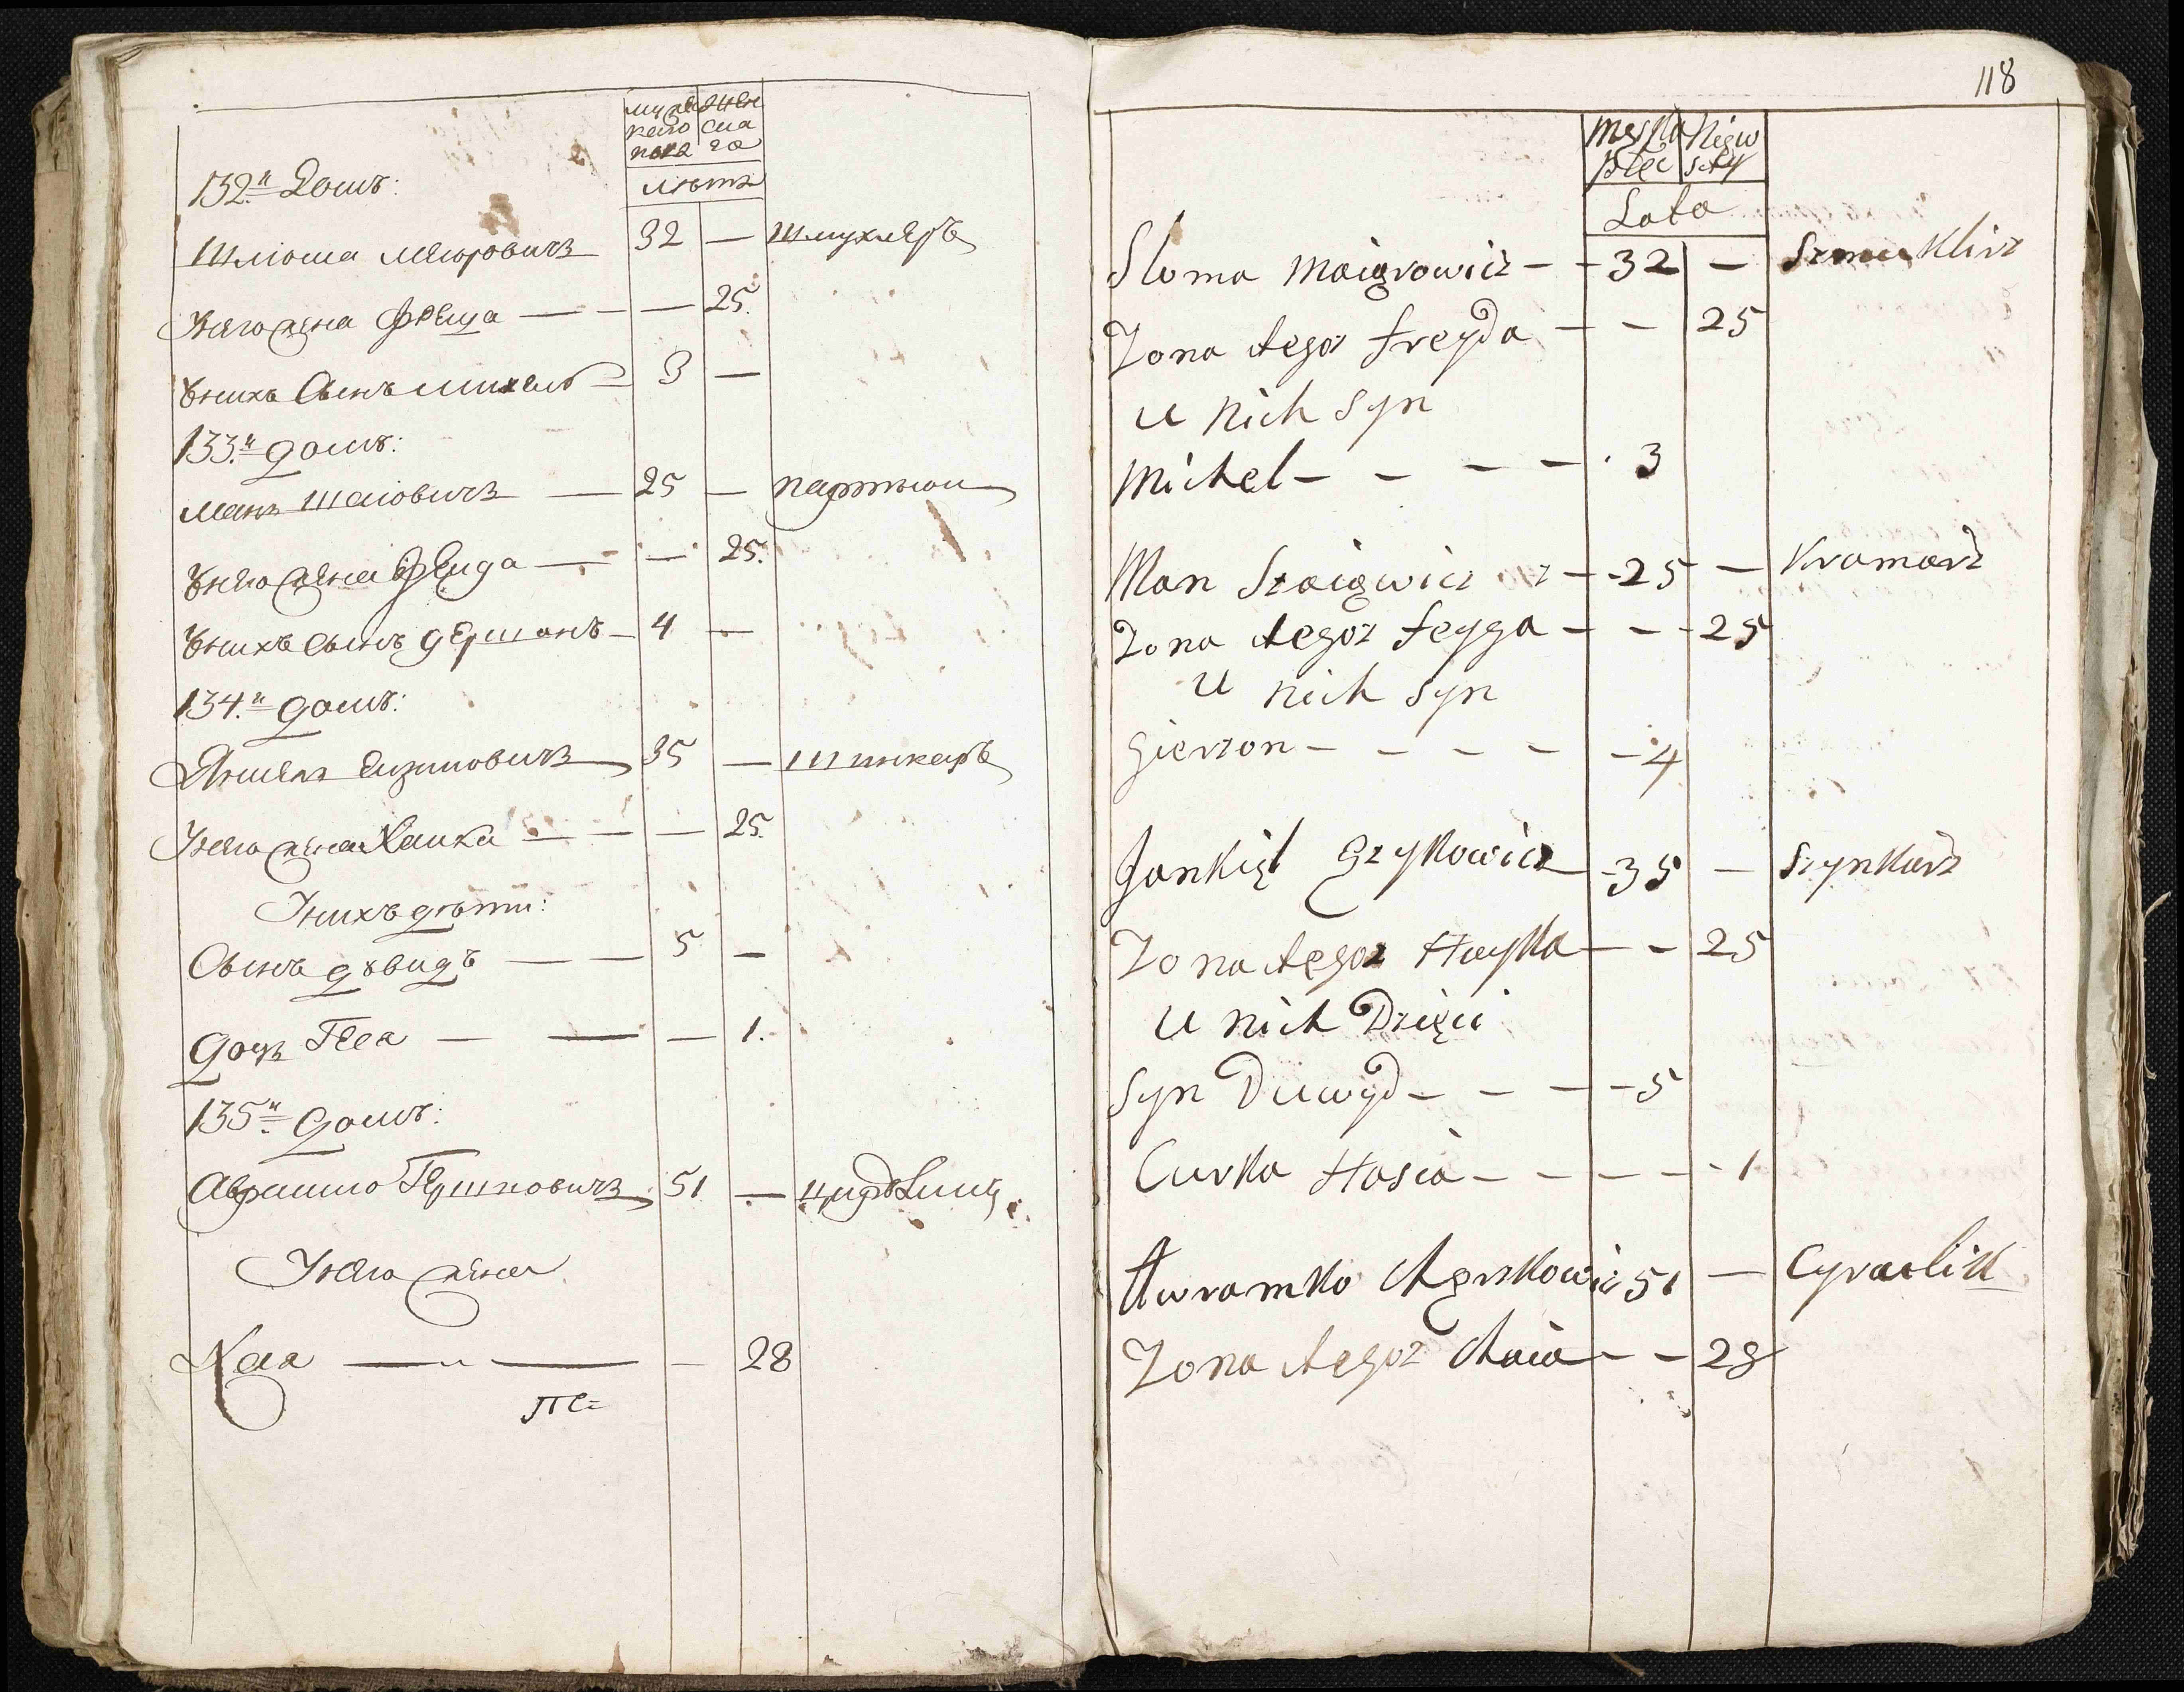 мужескаго пола
женскаго
лѣтъ
132.й Домъ:
Шліома Маюровичъ — 32 — Шмуклѣръ
Унаго жена Фрейда — — — 25.
Унихъ Сынъ Михель — 3 —
133.й домъ:
Манъ Шаіовичъ — 25 —
Унаго жена Фейга — — — 25.
Унихъ Сынъ Гершонъ — 4 —
134.й домъ:
Янкель Айзиковичъ 35 — Шинкаръ
Унаго жена Хайка — — — 25.
Унихъ дѣти:
Сынъ дввидъ — — 5 —
дочь — — — 1.
135.й домъ:
Аврамко Гершковичъ 51. — Цирулик
Унаго жена
Хая — — — 28
118
Męska płeć
Niewiasty
Lata
Sloma Maigrowicz - - 32 — Szmuklirz
Zona Aegoz Freyda — — 25
U nich Syn
Michel - - - - . 3
Man Szaigwicz - - 25 — Kramarz
Zona Aegoz Feyga - - - 25
U nich Syn
Gierzon - - - - - 4
Jankiel Gzykowicz - 35 — Szynkarz
Zona Aegoz Hayka — - 25
U nich Dzieci
Syn Duwyd - - - - 5
Curka Hasia - - - - - 1
Awramko Herszkowic 51 — Cyrulik
Zona Aegoz Haia - - 28